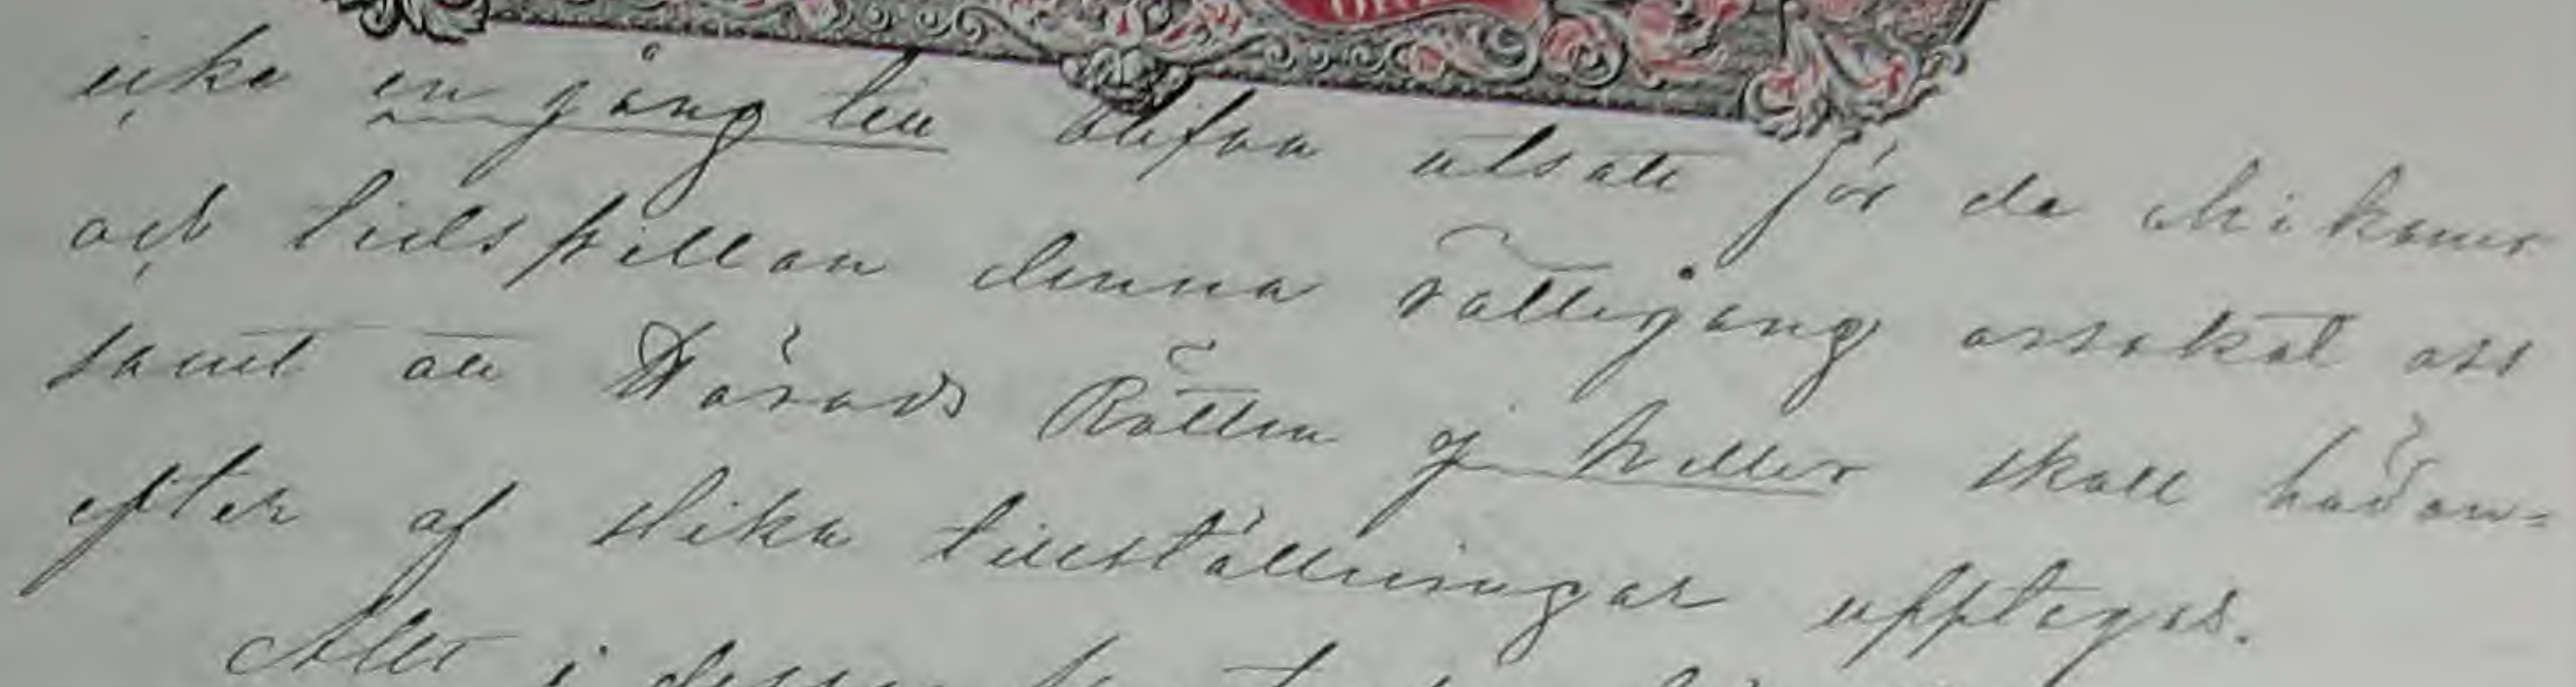 icke en gång till blifva utsatt för de chikaner
och tidspillan denna rättegång orsakat oss
samt att Härads Rätten ej heller skall hädan-
efter af slika tillställningar upptagas.
Allt i dessa